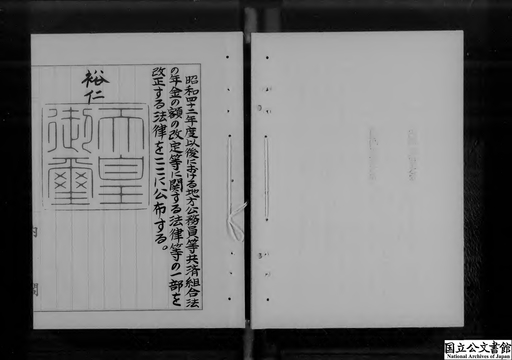 昭和四十二年度以後における地方公務員等共済組合法
の年金の額の改定等に関する法律等の一部を
改正する法律をここに公布する。
裕仁
天皇
御璽
国立公文書館
National Archives of Japan